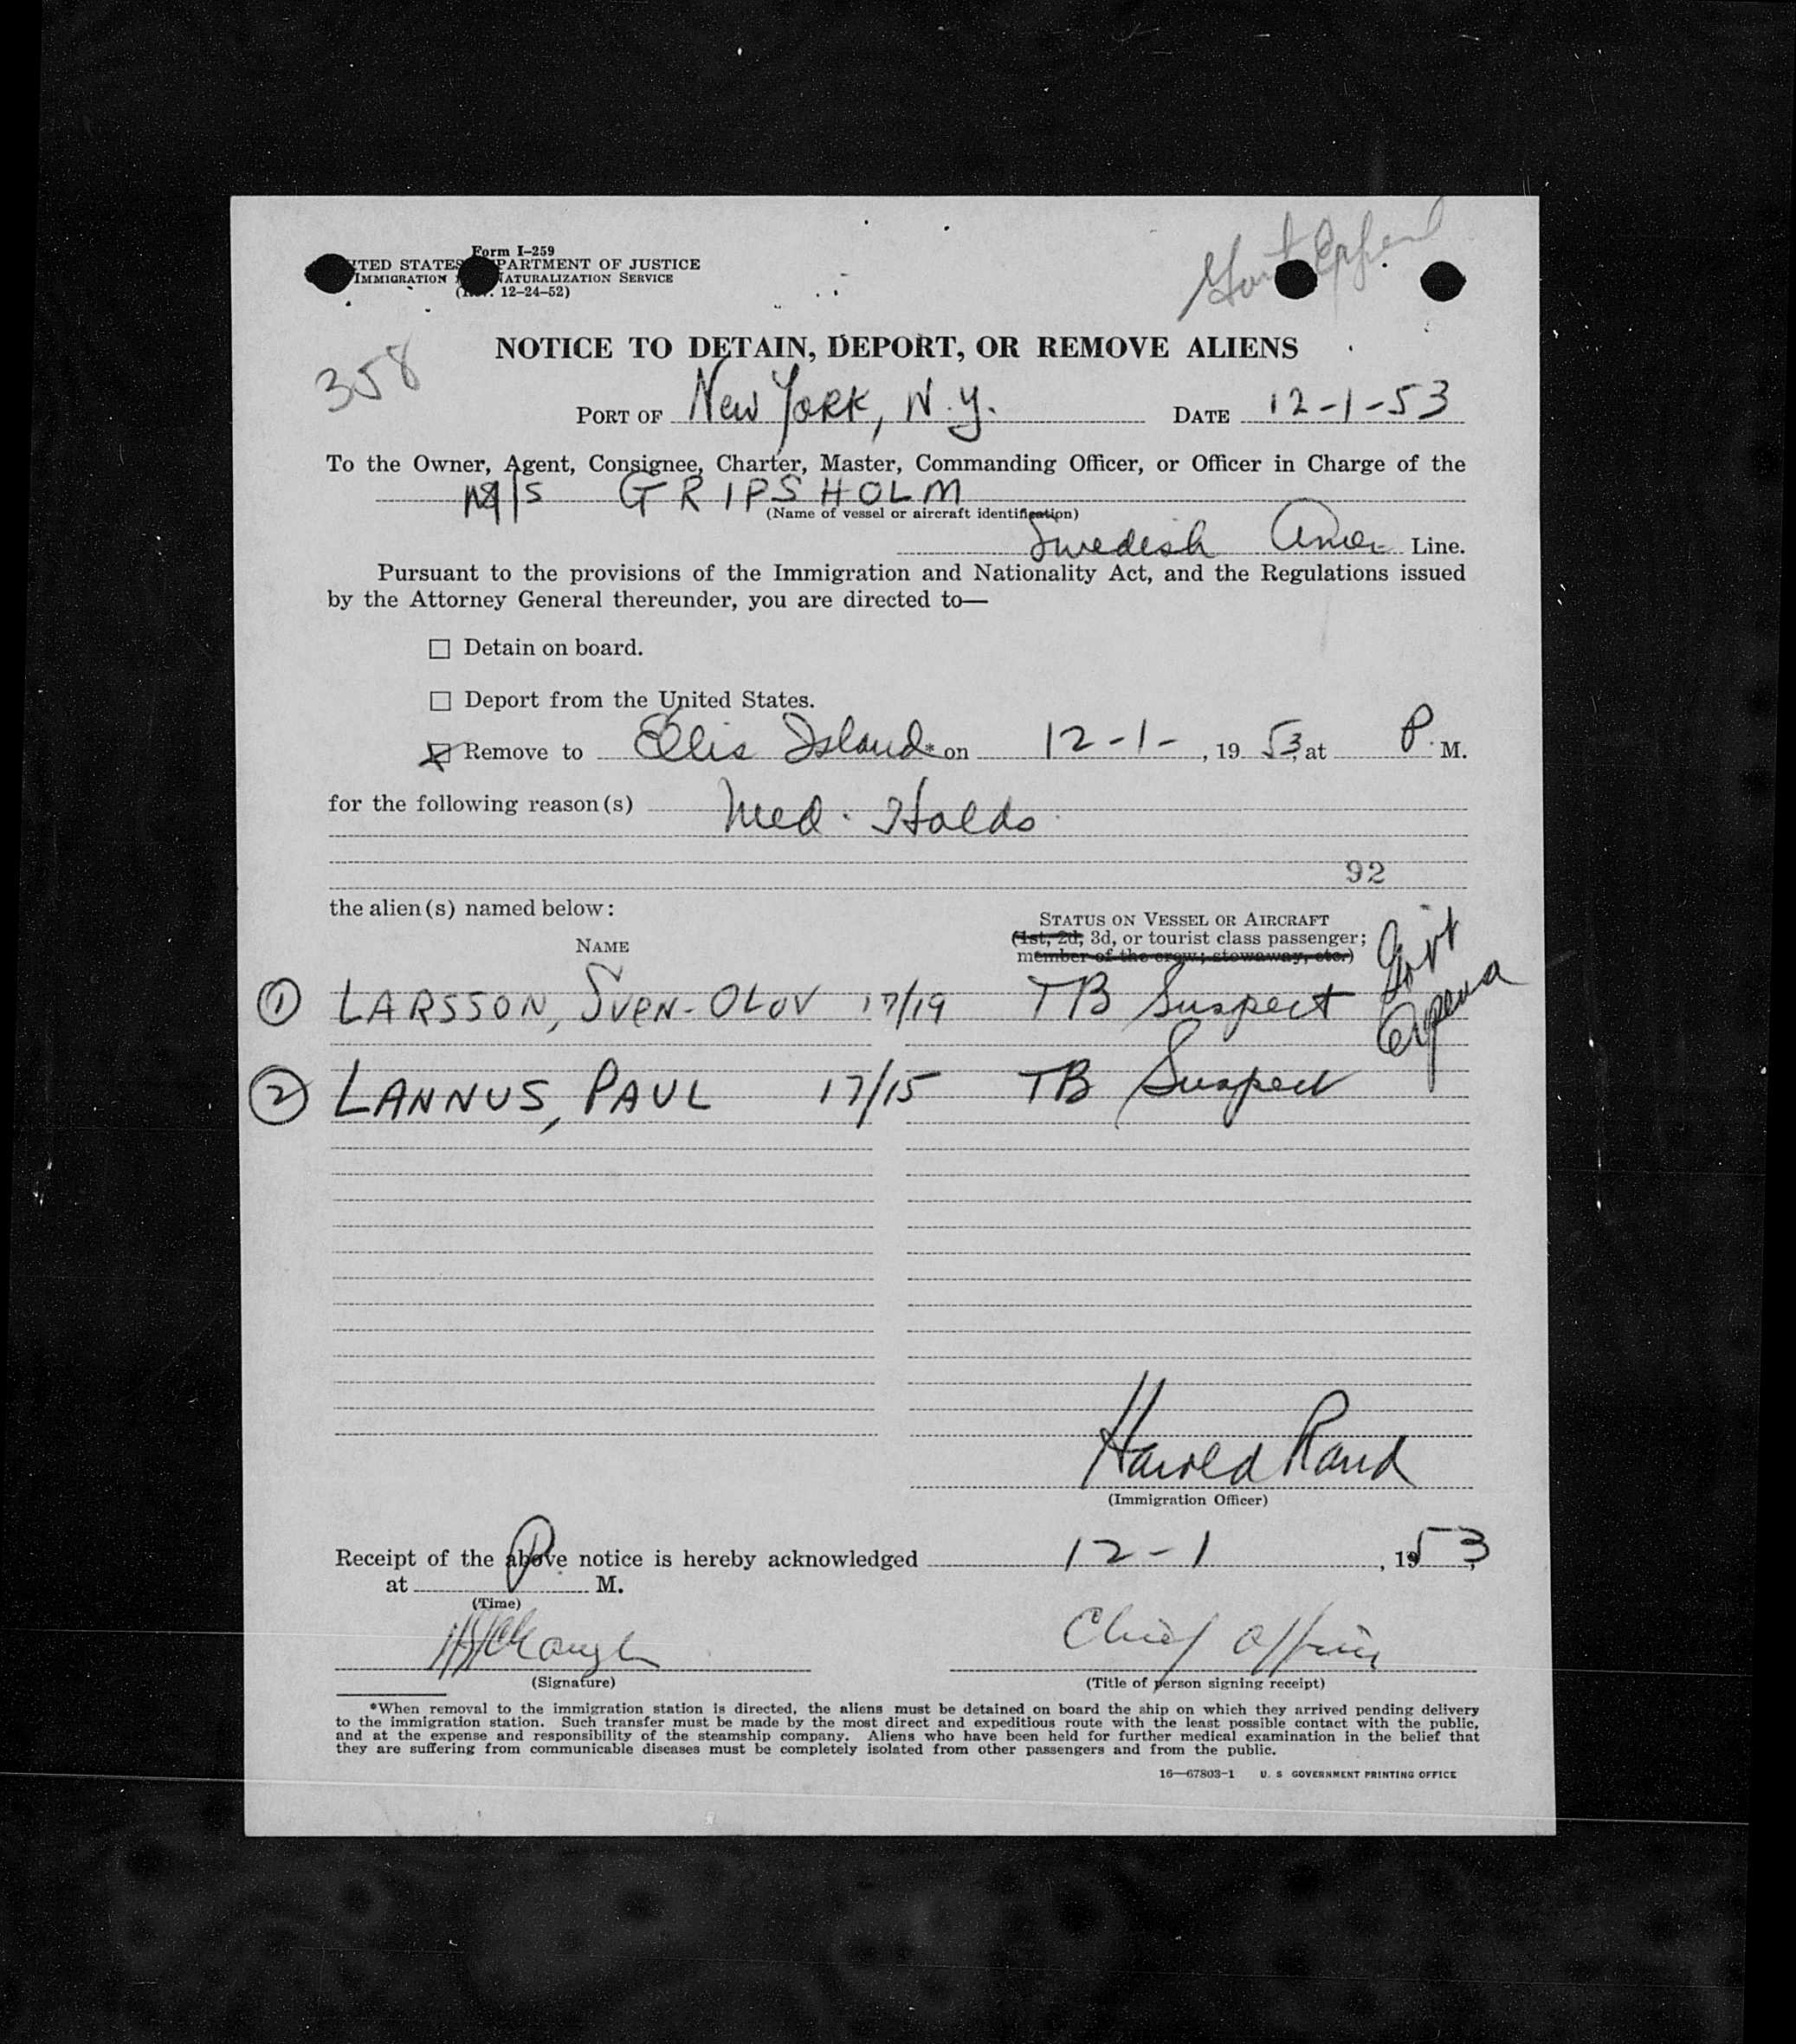 Form I-259
UNITED STATES DEPARTMENT OF JUSTICE
IMMIGRATION NATURALIZATION SERVICE
(Rev. 12-24-52)
358
NOTICE TO DETAIN, DEPORT, OR REMOVE ALIENS
PORT OF New York, N.Y. DATE 12-1-53
To the Owner, Agent, Consignee, Charter, Master, Commanding Officer, or Officer in Charge of the
M/S GRIPSHOLM
(Name of vessel or aircraft identification)
Swedish Amer. Line.
Pursuant to the provisions of the Immigration and Nationality Act, and the Regulations issued
by the Attorney General thereunder, you are directed to—
☐ Detain on board.
☐ Deport from the United States.
☒ Remove to Ellis Island* on 12-1-, 19 53, at P. M.
for the following reason(s) Med. Holds
92
the alien(s) named below:
STATUS ON VESSEL OR AIRCRAFT
NAME
(1st, 2d, 3d, or tourist class passenger;
member of the crew; stowaway, etc.)
Govt
① LARSSON, SVEN-OLOV 17/19 TB Suspect
② LANNUS, PAUL 17/15 TB Suspect
Harold Rand
(Immigration Officer)
Receipt of the above notice is hereby acknowledged 12-1, 1953,
at P. M.
(Time)
Chief Officer
(Signature)
(Title of person signing receipt)
*When removal to the immigration station is directed, the aliens must be detained on board the ship on which they arrived pending delivery
to the immigration station. Such transfer must be made by the most direct and expeditious route with the least possible contact with the public,
and at the expense and responsibility of the steamship company. Aliens who have been held for further medical examination in the belief that
they are suffering from communicable diseases must be completely isolated from other passengers and from the public.
16—67803-1 U. S GOVERNMENT PRINTING OFFICE